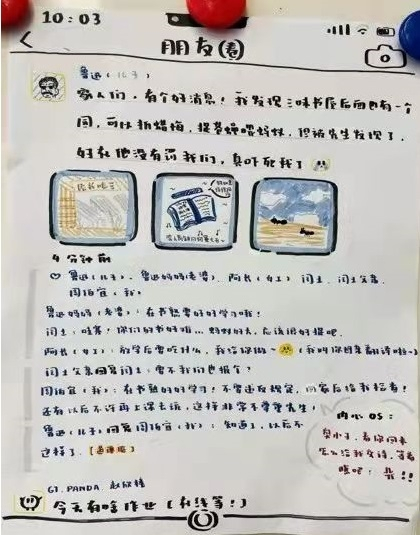 10:03
朋友(圈)
鲁迅(儿子)
家人们，有个好消息！我发现三味书屋后面也有一个
园，可以折蜡梅，捉苍蝇喂蚂蚁，但被先生发现了，
好在他没有罚我们，真吓死我了
4分钟前
鲁迅(儿子)、鲁迅妈妈(老婆)、阿长(女工) 闰土、闰土父亲、
周伯宜(我)
鲁迅妈妈(老婆)：在书塾要好好学习哦！
闰土：哇塞！你们的书好难... 蚂蚁好大，应该很好捉吧。
阿长(女工)：放学后要吃什么，我给你做
闰土父亲回复闰土：要不我们也报个？
周伯宜(我)：在书塾好好学习！不要违反规定，回家后给我检查！
还有以后不许再上课去玩，这样非常不尊重先生！
鲁迅(儿子)回复周伯宜(我)：知道了，以后不
这样了
内心OS：
臭小子，看你回来
怎么给我交待，等着
瞧吧！哼!!
G1. PANDA
今天有啥作业【在线等！】